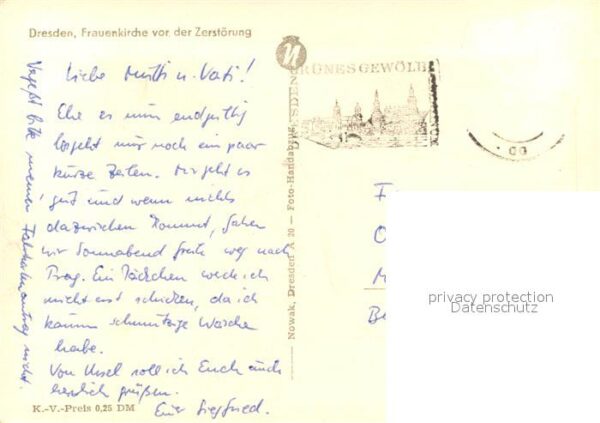 Dresden, Frauenkirche vor der Zerstörung
Liebe Mutti u. Vati!
Ehe es nun endgültig
losgeht nur noch ein paar
kurze Zeilen. Mir geht es
gut und wenn nichts
dazwischen kommt, fahren
wir Sonnabend früh weg nach
Prag. Ein Päckchen werde ich
nicht erst schicken, da ich
kaum schmutzige Wäsche
habe.
Von Ursel soll ich Euch auch
herzlich grüßen.
Euer Siegfried.
Vergeßt bitte meinen nicht.
K.-V.-Preis 0,25 DM
Nowak, Dresden A 20 — Foto-Handabzug
GRÜNES GEWÖLBE
DRESDEN
privacy protection
Datenschutz